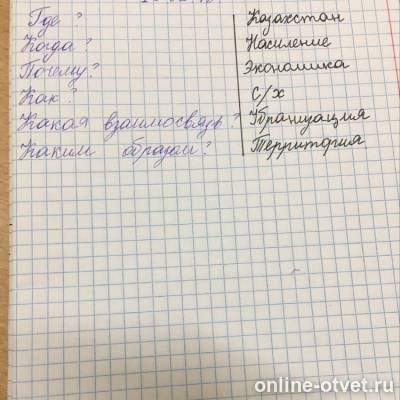 Где? Казахстан
Когда? Население
Почему? Экономика
Как? с/х
Какая взаимосвязь? Убранизация
Каким образом? Территория
online-otvet.ru